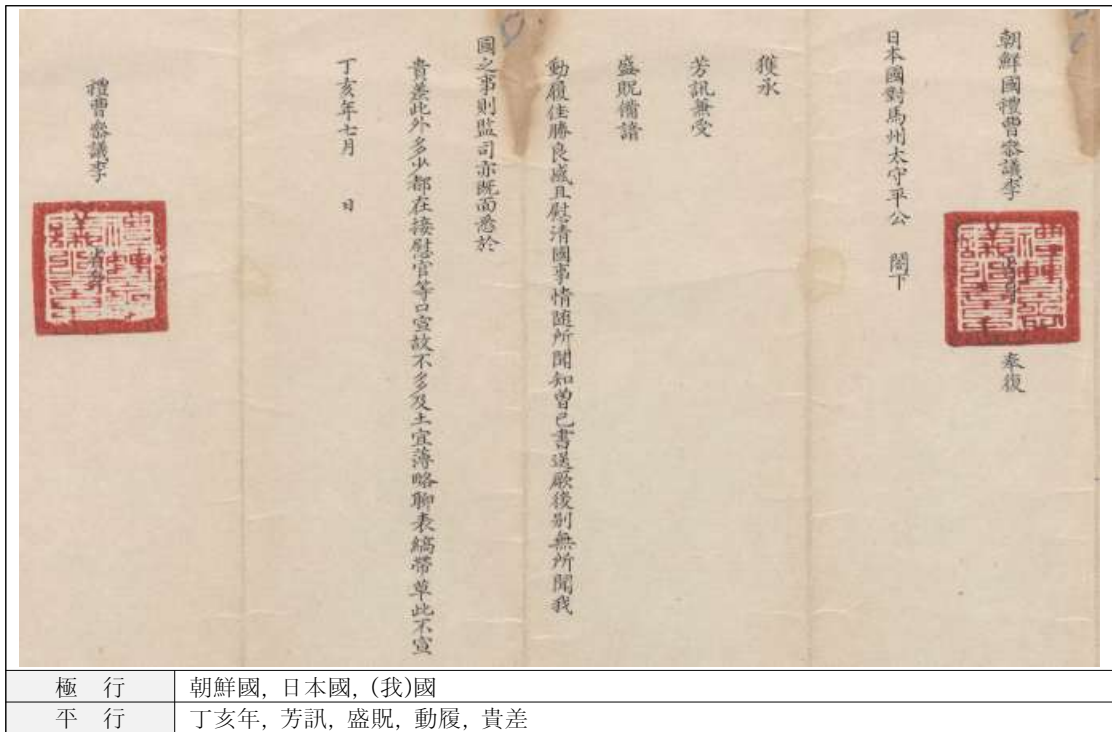 朝鮮國禮曹參議李 奉復
日本國對馬州太守平公 閤下
獲承
芳訊兼受
盛貺備諳
動履佳勝良感且慰清國事情隨所聞知曾已書送厥後別無所聞我
國之事則監司亦既面悉於
貴差此外多少都在接慰官等口宣故不多及土宜薄略聊表縞帶草此不宣
丁亥年七月 日
禮曹參議李
極 行 朝鮮國, 日本國, (我)國
平 行 丁亥年, 芳訊, 盛貺, 動履, 貴差